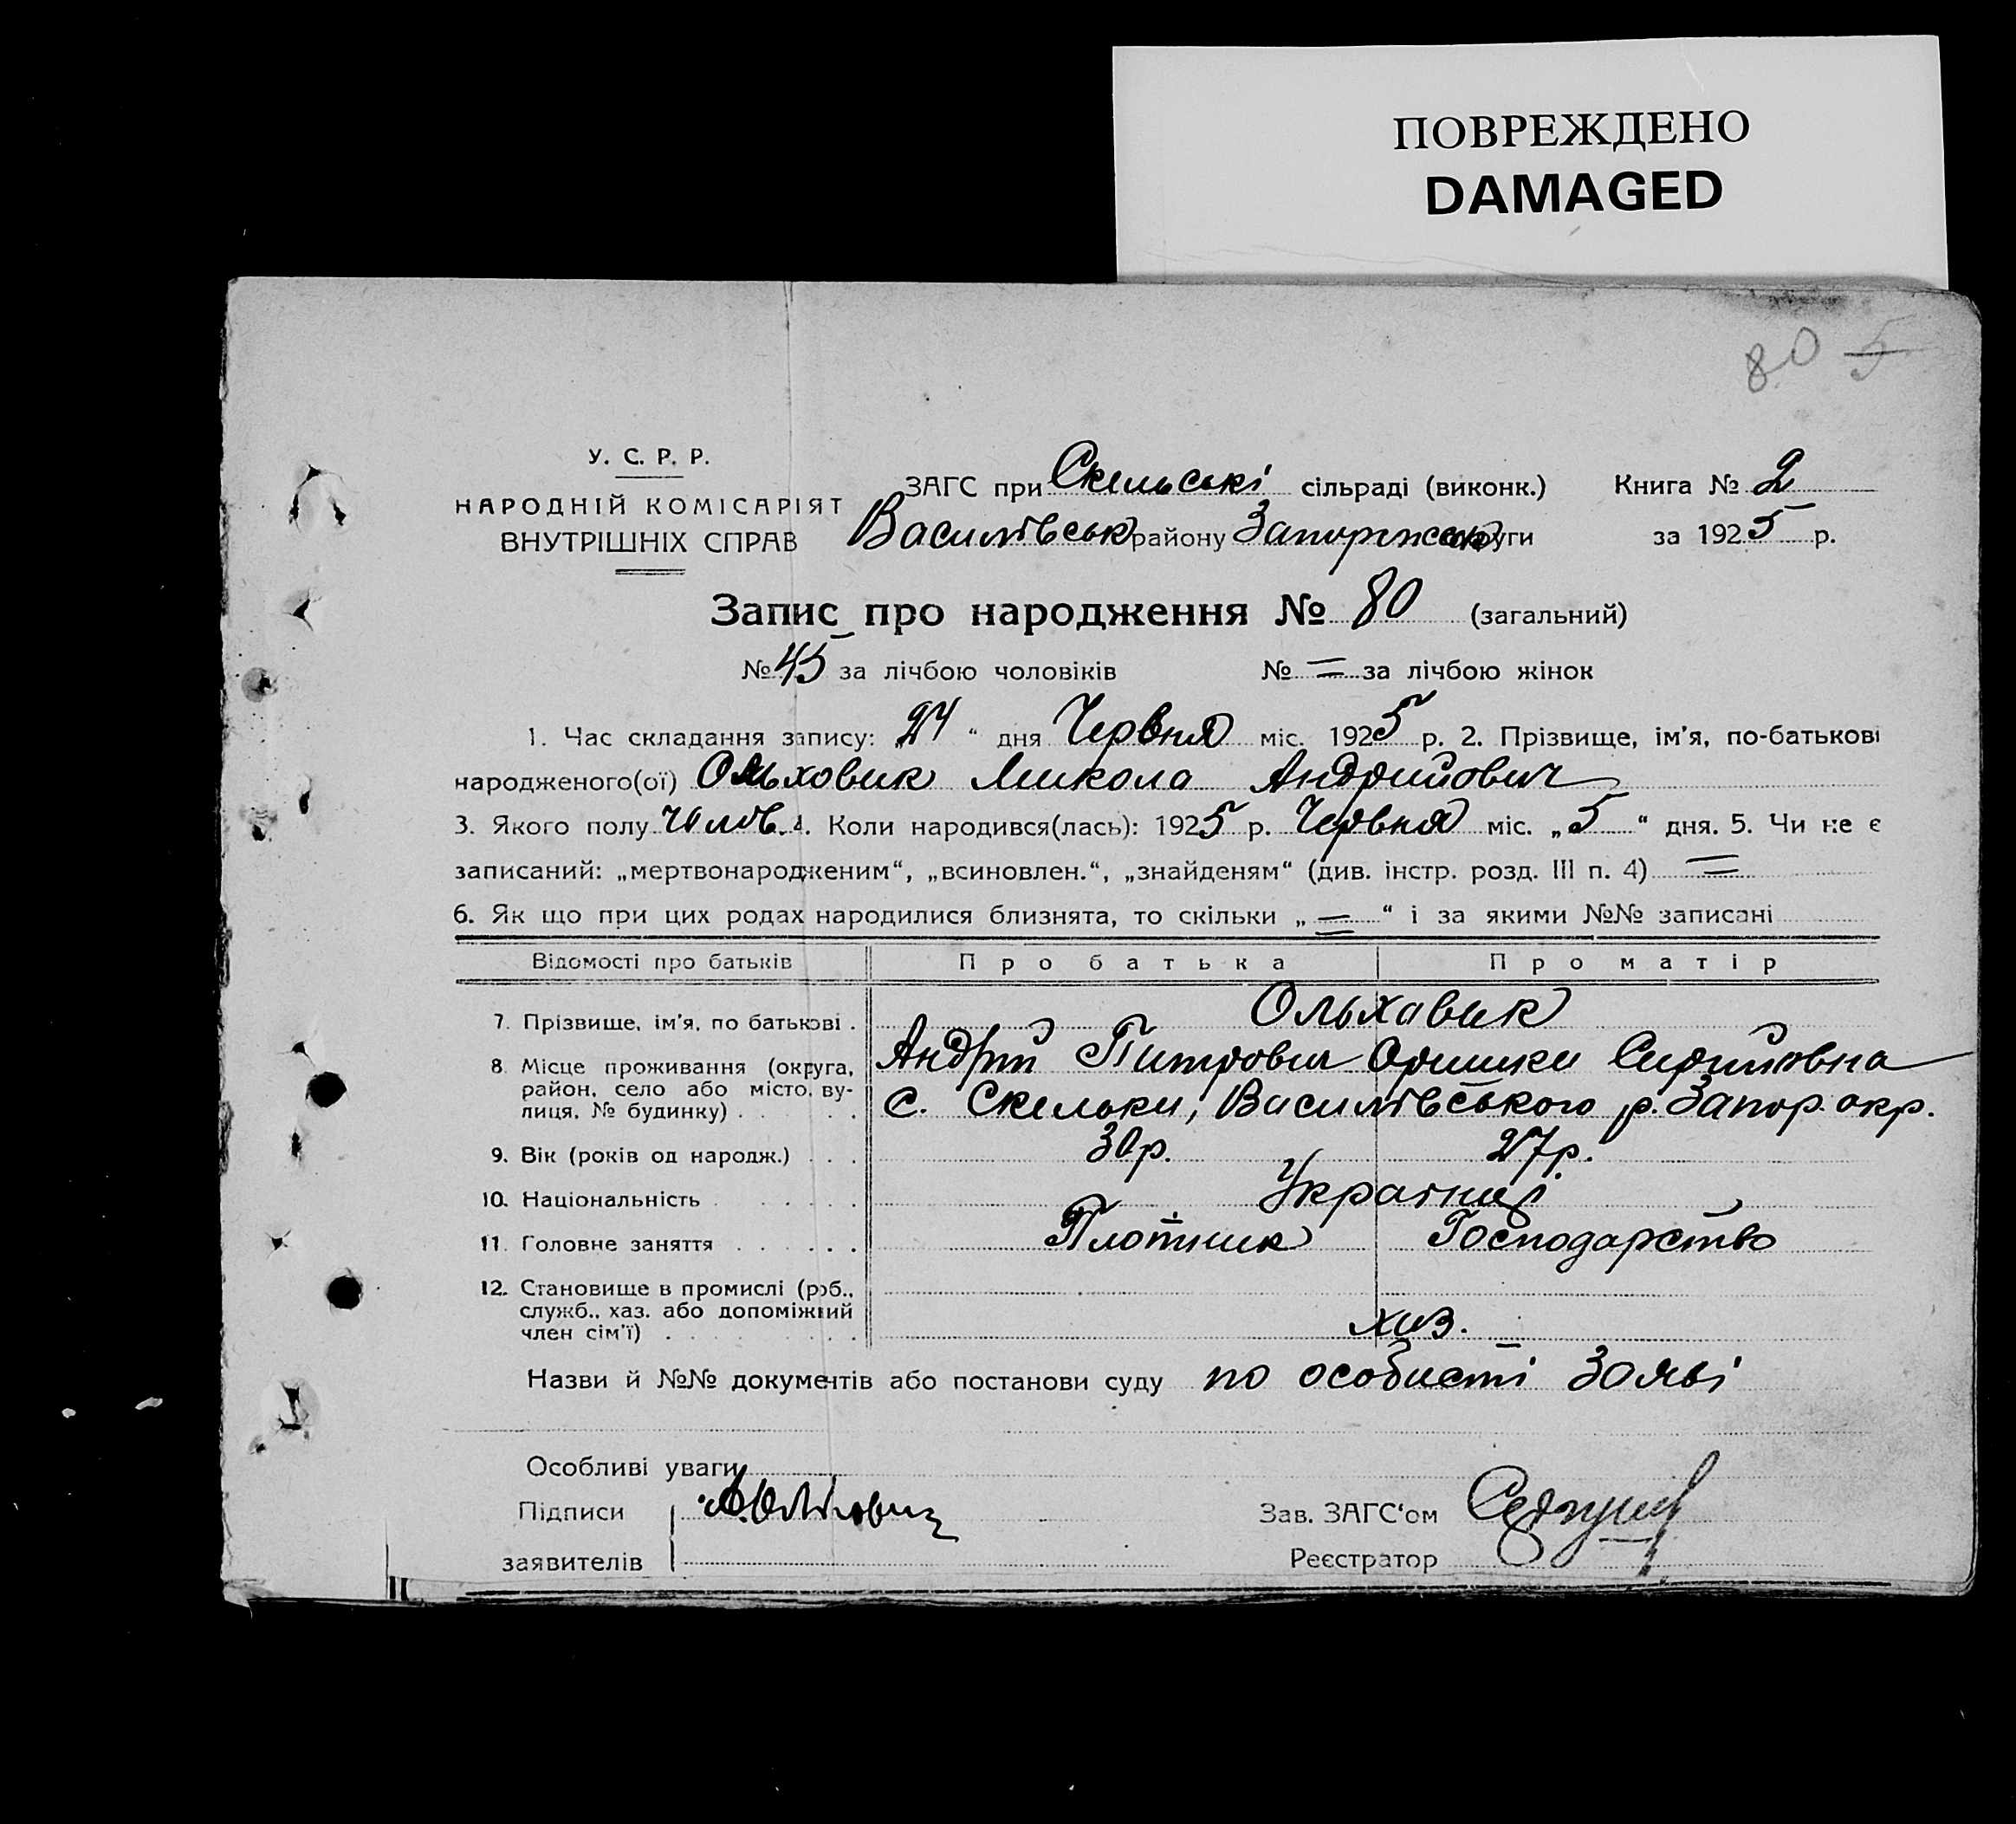 ПОВРЕЖДЕНО
DAMAGED
80 5
У. С. Р. Р.
НАРОДНІЙ КОМІСАРІЯТ
ВНУТРІШНІХ СПРАВ
ЗАГС при Скельські сільраді (виконк.) Книга № 2
Василівськ району Запорізськ округи за 1925 р.
Запис про народження № 80 (загальний)
№ 45 за лічбою чоловіків № = за лічбою жінок
1. Час складання запису: „24“ дня Червня міс. 1925 р. 2. Прізвище, ім'я, по-батькові
народженого(ої) Ольховик Микола Андрийович
3. Якого полу Чолов. 4. Коли народився(лась): 1925 р. Червня міс. „5“ дня. 5. Чи не є
записаний: „мертвонародженим“, „всиновлен.“, „знайденям“ (див. інстр. розд. III п. 4) =
6. Як що при цих родах народилися близнята, то скільки „=“ і за якими №№ записані
Відомості про батьків Про батька Про матір
7. Прізвище, ім'я, по батькові . Ольхавик
Андрій Питрович Оришки
8. Місце проживання (округа, район, село або місто, вулиця, № будинку) . . . . с. Скельки, Василівського р. Запор. окр.
9. Вік (років од народж.) . . . 30р. 27р.
10. Національність . . . . . . Українці
11. Головне заняття . . . . . . Плотник Господарство
12. Становище в промислі (роб., служб., хаз. або допоміжний член сім'ї) . . . . . . . хаз.
Назви й №№ документів або постанови суду по особисті заяві
Особливі уваги
Підписи Зав. ЗАГС'ом
заявителів Реєстратор